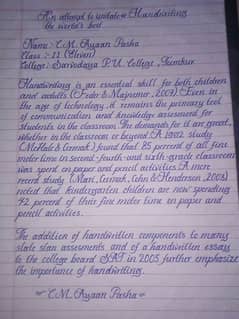 An attempt to imitate Handwriting
the world's best
Name :- C.M. Ayaan Pasha
Class :- 11 (Eleven)
College :- Sarvodaya P.U. College, Tumkur
Handwriting is an essential skill for both children
and adults (Feder & Majnemer, 2007). Even in
the age of technology, it remains the primary tool
of communication and knowledge assesment for
students in the classroom. The demands for it are great,
whether in the classroom or beyond. A 1992 study
(McHale & Cermak) found that 85 percent of all fine
motor time in second-fourth-and sixth-grade classrooms
was spent on paper and pencil activities. A more
recent study (Marr, Cermak, Cohn & Henderson, 2003)
noted that kindergarten children are now spending
42 percent of their fine motor time on paper and
pencil activities.
The addition of handwritten components to many
state stan assesments and of a handwritten essay
to the college board SAT in 2005 further emphasize
the importance of handwriting.
C.M. Ayaan Pasha